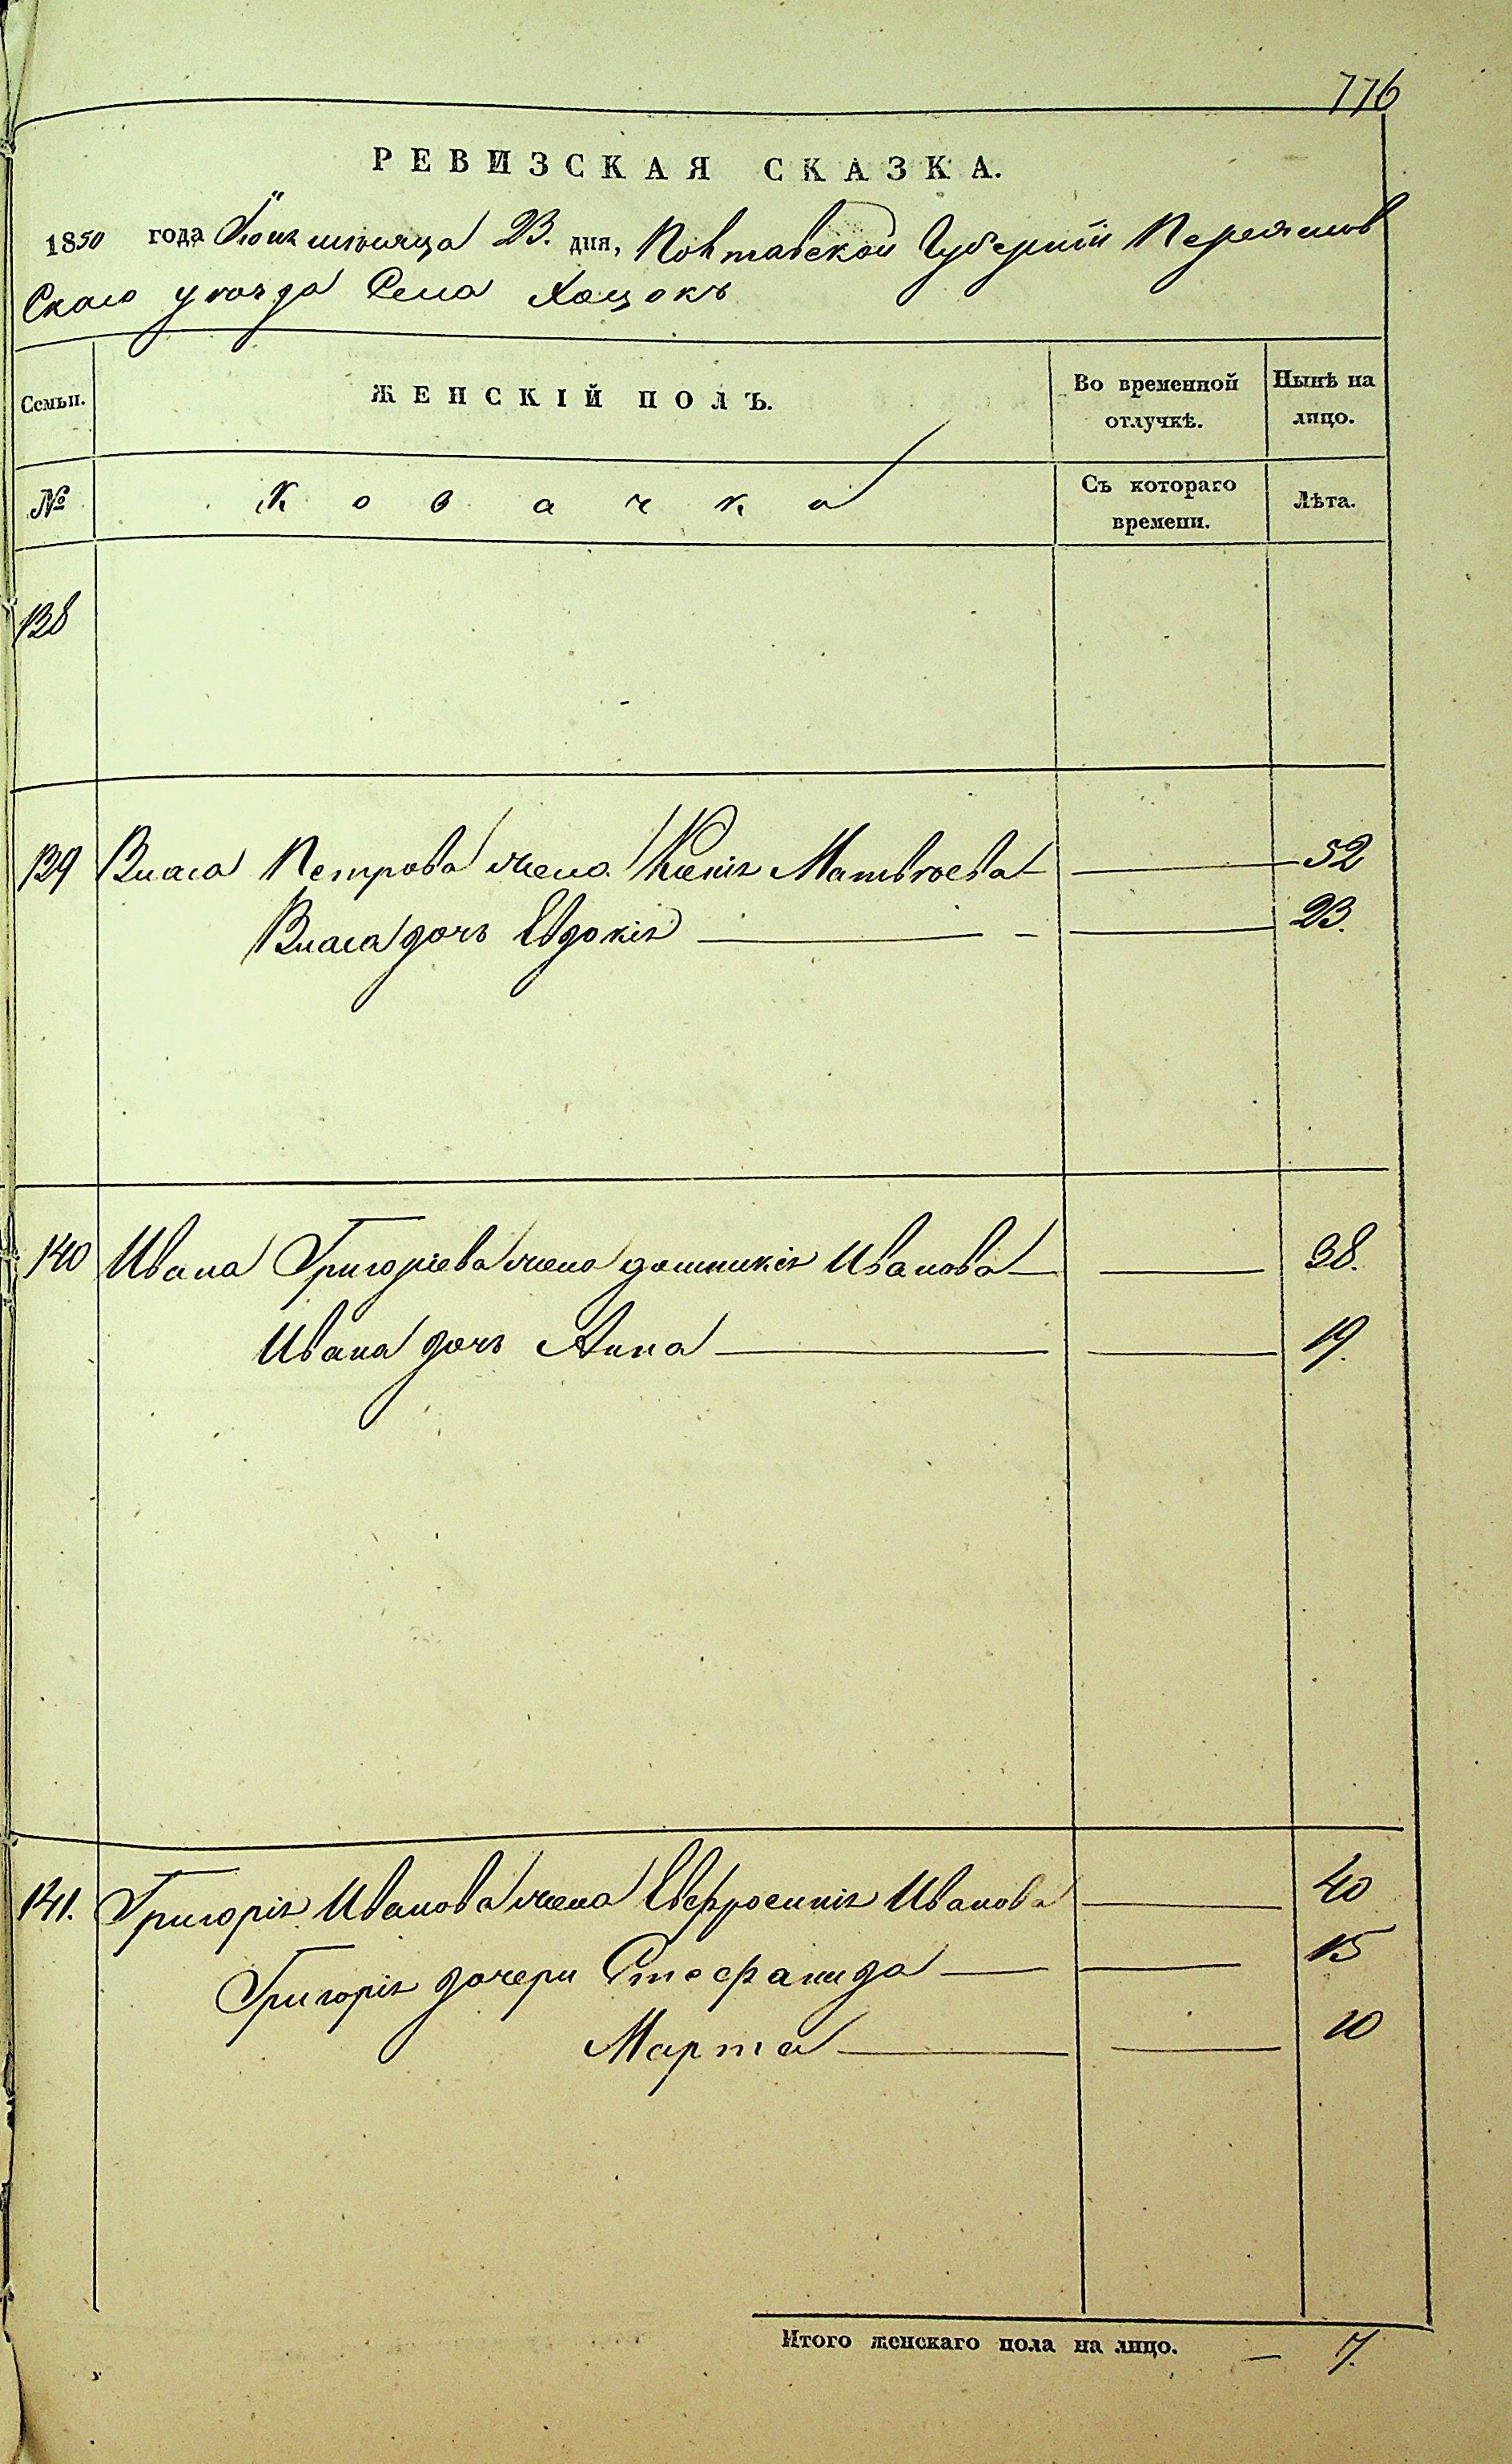 776
РЕВИЗСКАЯ СКАЗКА.
1850 года Іюня мѣсяца 23. дня, Полтавской Губерніи Переяслов
скаго уѣзда Села Хоцокъ
Семьи. ЖЕНСКІЙ ПОЛЪ. Во временной отлучкѣ. Нынѣ на лицо.
№ Козачка Съ котораго времени. Лѣта.
138
139 Власа Петрова жена Ксенія Матвѣева 52
Власа дочь Евдокія 23.
140 Ивана Григоріева жена домникія Иванова 38.
Ивана дочь Анна 19.
141. Григорія Иванова жена Евфросинія Иванова 40
Григорія дочери Стефанида 15
Марта 10
Итого женскаго пола на лицо. — 7.